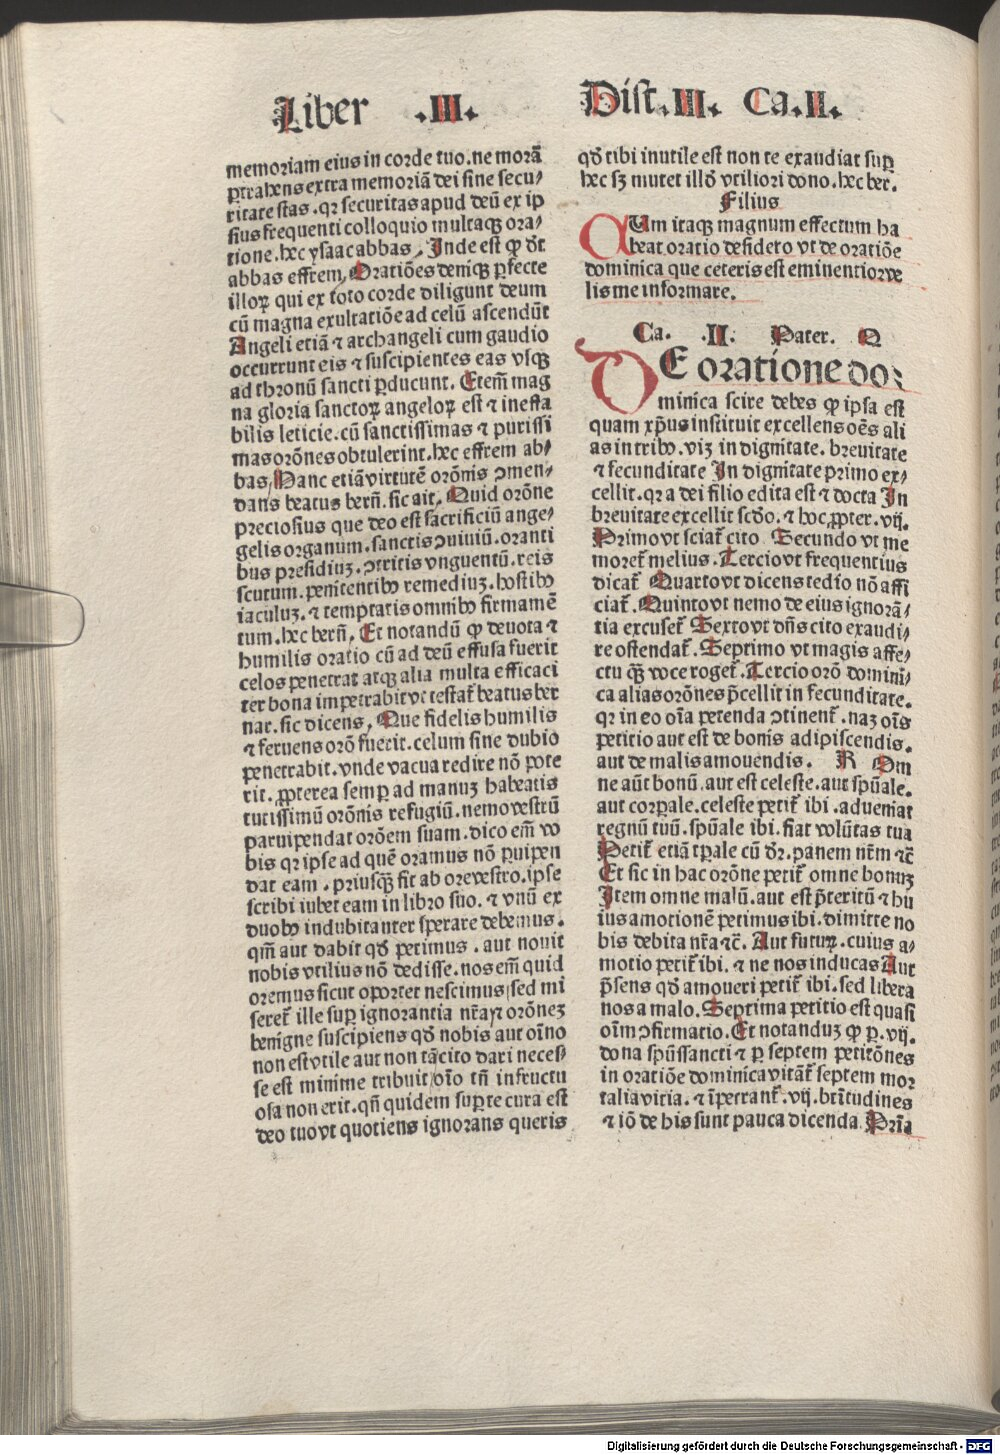 Liber .III.
Dist.III. Ca.II.
memoriam eius in corde tuo.ne morā
ꝑtrahens extra memoriā dei sine secu⸗
ritate stas.qꝛ securitas apud deū ex ip
sius frequenti colloquio multaqꝫ ora⸗
tione.hec ysaac abbas, Inde est ꝙ dt̄
abbas effrem, Oratiōes deniqꝫ ꝑfecte
illoꝝ qui ex toto corde diligunt deum
cū magna exultatiōe ad celū ascendūt
Angeli etiā ⁊ archangeli cum gaudio
occurrunt eis ⁊ suscipientes eas vsqꝫ
ad thronū sancti ꝑducunt. Etem̄ mag
na gloria sanctoꝝ angeloꝝ est ⁊ ineffa
bilis leticie.cū sanctissimas ⁊ purissi
mas orōnes obtulerint.hec effrem ab⸗
bas, Hanc etiā virtutē orōnis ꝯmen⸗
dans beatus bern̄.sic ait, Quid orōne
preciosius que deo est sacrificiū ange⸗
gelis organum.sanctis ꝯuiuiū.oranti
bus presidiuꝫ.ꝯtritis vnguentū.reis
scutum.penitentibꝰ remediuꝫ.hostibꝰ
iaculuꝫ.⁊ temptatis omnibꝰ firmamē
tum.hec bern̄, Et notandū ꝙ deuota ⁊
humilis oratio cū ad deū effusa fuerit
celos penetrat atqꝫ alia multa efficaci
ter bona impetrabit vt testat̄ beatus ber
nar.sic dicens, Que fidelis humilis
⁊ feruens orō fuerit.celum sine dubio
penetrabit.vnde vacua redire nō pote
rit.ꝓpterea semꝑ ad manuꝫ habeatis
tutissimū orōnis refugiū.nemo vestrū
paruipendat orōem suam.dico em̄ vo
bis qꝛ ipse ad quē oramus nō ꝑuipen
dat eam.priusqꝫ̄ fit ab ore vestro.ipse
scribi iubet eam in libro suo.⁊ vnū ex
duobꝰ indubitanter sperare debemus.
qm̄ aut dabit qd̄ petimus.aut nouit
nobis vtilius nō dedisse.nos em̄ quid
oremus sicut oportet nescimus,sed mi
seret̄ ille suꝑ ignorantia nr̄a,⁊ orōneꝫ
benigne suscipiens qd̄ nobis aut oīno
non est vtile aut non tā cito dari neces⸗
se est minime tribuit,oīo tn̄ infructu
osa non erit.qn̄ quidem suꝑ te cura est
deo tuo vt quotiens ignorans queris
qd̄ tibi inutile est non te exaudiat suꝑ
hec sꝫ mutet illd̄ vtiliori dono.hec ber.
Filius
CUm itaqꝫ magnum effectum ha
beat oratio desidero vt de oratiōe
dominica que ceteris est eminentior ve
lis me informare.
Ca. .II. Pater. D
DE oratione do⸗
minica scire debes ꝙ ipsa est
quam xp̄us instituit excellens oēs ali
as in tribꝰ.viꝫ in dignitate.breuitate
⁊ fecunditate In dignitate primo ex⸗
cellit.qꝛ a dei filio edita est ⁊ docta In
breuitate excellit scd̄o.⁊ hoc ꝓpter.vij.
Primo vt sciat̄ cito Secundo vt me
moret̄ melius.Tercio vt frequentius
dicat̄ Quarto vt dicens tedio nō affi
ciat̄.Quinto vt nemo de eius ignorā⸗
tia excuset̄ Sexto vt dn̄s cito exaudi⸗
re ostendat̄.Septimo vt magis affe⸗
ctu qꝫ̄ voce roget̄.Tercio orō domini⸗
ca alias orōnes p̄cellit in fecunditate.
qꝛ in eo oīa petenda ꝯtinent̄.naꝫ oīs
petitio aut est de bonis adipiscendis.
aut de malis amouendis. R Om
ne aūt bonū.aut est celeste.aut spūale.
aut corꝑale.celeste petit̄ ibi.adueniat
regnū tuū.spūale ibi.fiat volūtas tua
Petit̄ etiā tꝑale cū dr̄.panem nr̄m ⁊c̄
Et sic in hac orōne petit̄ omne bonuꝫ
Item omne malū.aut est p̄teritū ⁊ hu
ius amotionē petimus ibi.dimitte no
bis debita nr̄a ⁊c̄. Aut futuꝝ.cuius a⸗
motio petit̄ ibi.⁊ ne nos inducas Aut
p̄sens qd̄ amoueri petit̄ ibi.sed libera
nos a malo.Septima petitio est quasi
oīm ꝯfirmatio.Et notanduꝫ ꝙ ꝑ.vij.
dona spūssancti ⁊ ꝑ septem petitōnes
in oratiōe dominica vitāt̄ septem mor
talia vitia.⁊ īpetrant̄.vij.btītudines
⁊ iō de his sunt pauca dicenda.Prīa
Digitalisierung gefördert durch die Deutsche Forschungsgemeinschaft - DFG